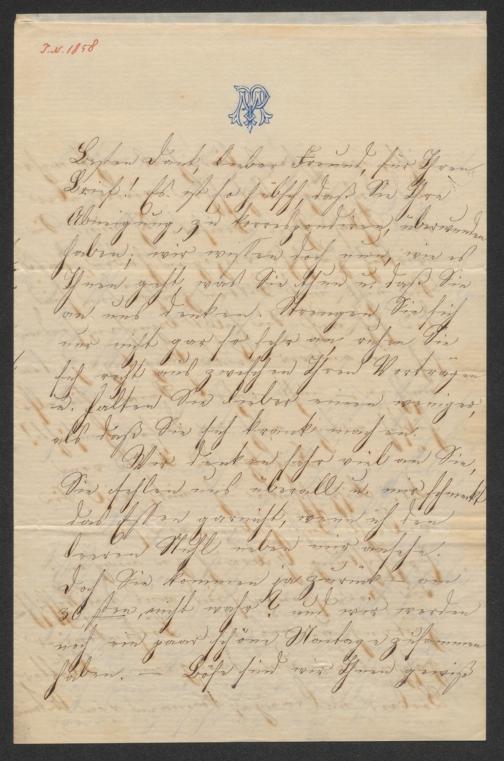 I.N. 1858
MR
Besten Dank, lieber Freund, für Ihren
Brief! Es ist so hübsch, daß Sie Ihre
Abneigung, zu korrespondiren, überwunden
haben; wir wissen doch nun, wie es
Ihnen geht, was Sie thun u. daß Sie
an uns denken. Strengen Sie sich
nur nicht gar so sehr an, ruhen Sie
sich recht aus zwischen Ihren Vorträgen
u. halten Sie lieber einen weniger,
als daß Sie sich krank machen.
Wir denken sehr viel an Sie,
Sie fehlen uns überall u. mir schmeckt
das Essen garnicht, wenn ich den
leeren Stuhl neben mir ansehe.
Doch Sie kommen ja zurück – am
30sten, nicht wahr? und wir werden
noch ein paar schöne Montage zusammen
haben. — Böse sind wir Ihnen gewiß